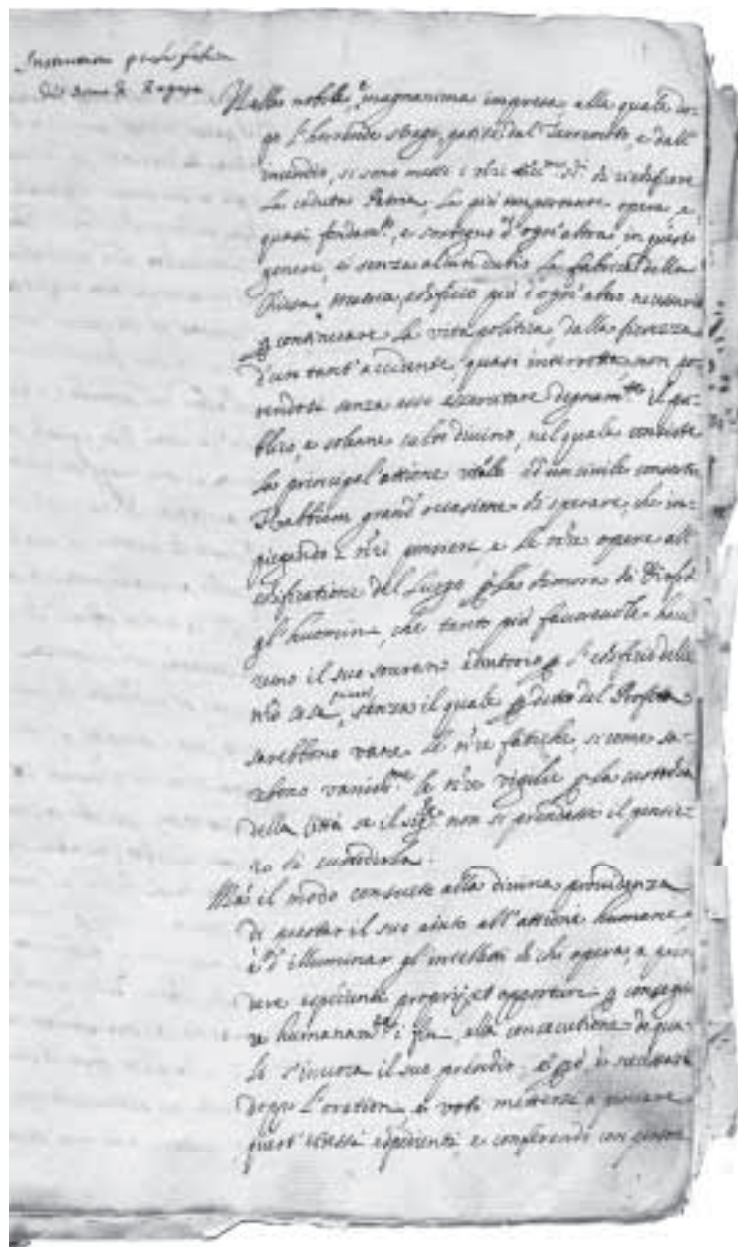 Instruttione per la fabrica
del Duomo di Ragusa
Nella nobile, e magnanima impresa, alla quale do-
po l'horrende strage, patite dal Terremoto, e dall'
incendio, si sono messi i di riedificare
la caduta Patria, la più importante opera, e
quasi fondam.to, e sostegno d'ogn'altra in questo
genere, è senza alcun dubio la fabrica della
Chiesa, edificio più d'ogn'altro necessario
p continuare la vita politica, dalla fierezza
d'un tant'accidente quasi interrotta non po-
tendosi senza esso essercitare degnam.te il pu-
blico, e solenne culto divino, nel quale consiste
la principal'attione vitale d'un civile consortio
Habbiam grand'occasione di sperare, che im-
piegando i n.ri pensieri, e le n.re opere all'
edificatione del luogo p la dimora di Dio fra
gl'huomini, che tanto più favorevole have
remo il suo sourano adiutorio p l'edifitio delle
n.re case, senza il quale p detto del Profeta
sarebbono vane le n.re fatiche, si come sa-
rebono vaniss.me le n.re vigilie p la custodia
della Città se il Sig.re non si prendesse il pensie-
ro di custodirla.
Mà il modo consueto alla divina providenza
di prestar il suo aiuto all'attioni humane,
è d'illuminar gl'intelletti di chi opera, a
vere espedienti proprij, et opportuni p consegui
re humanam.te i fini, alla consecutione de qua-
li s'invoca il suo presidio; e p.ò è necessario
doppo l'orationi, e voti mettersi a
quest'istessi espedienti, e conferendo con persone